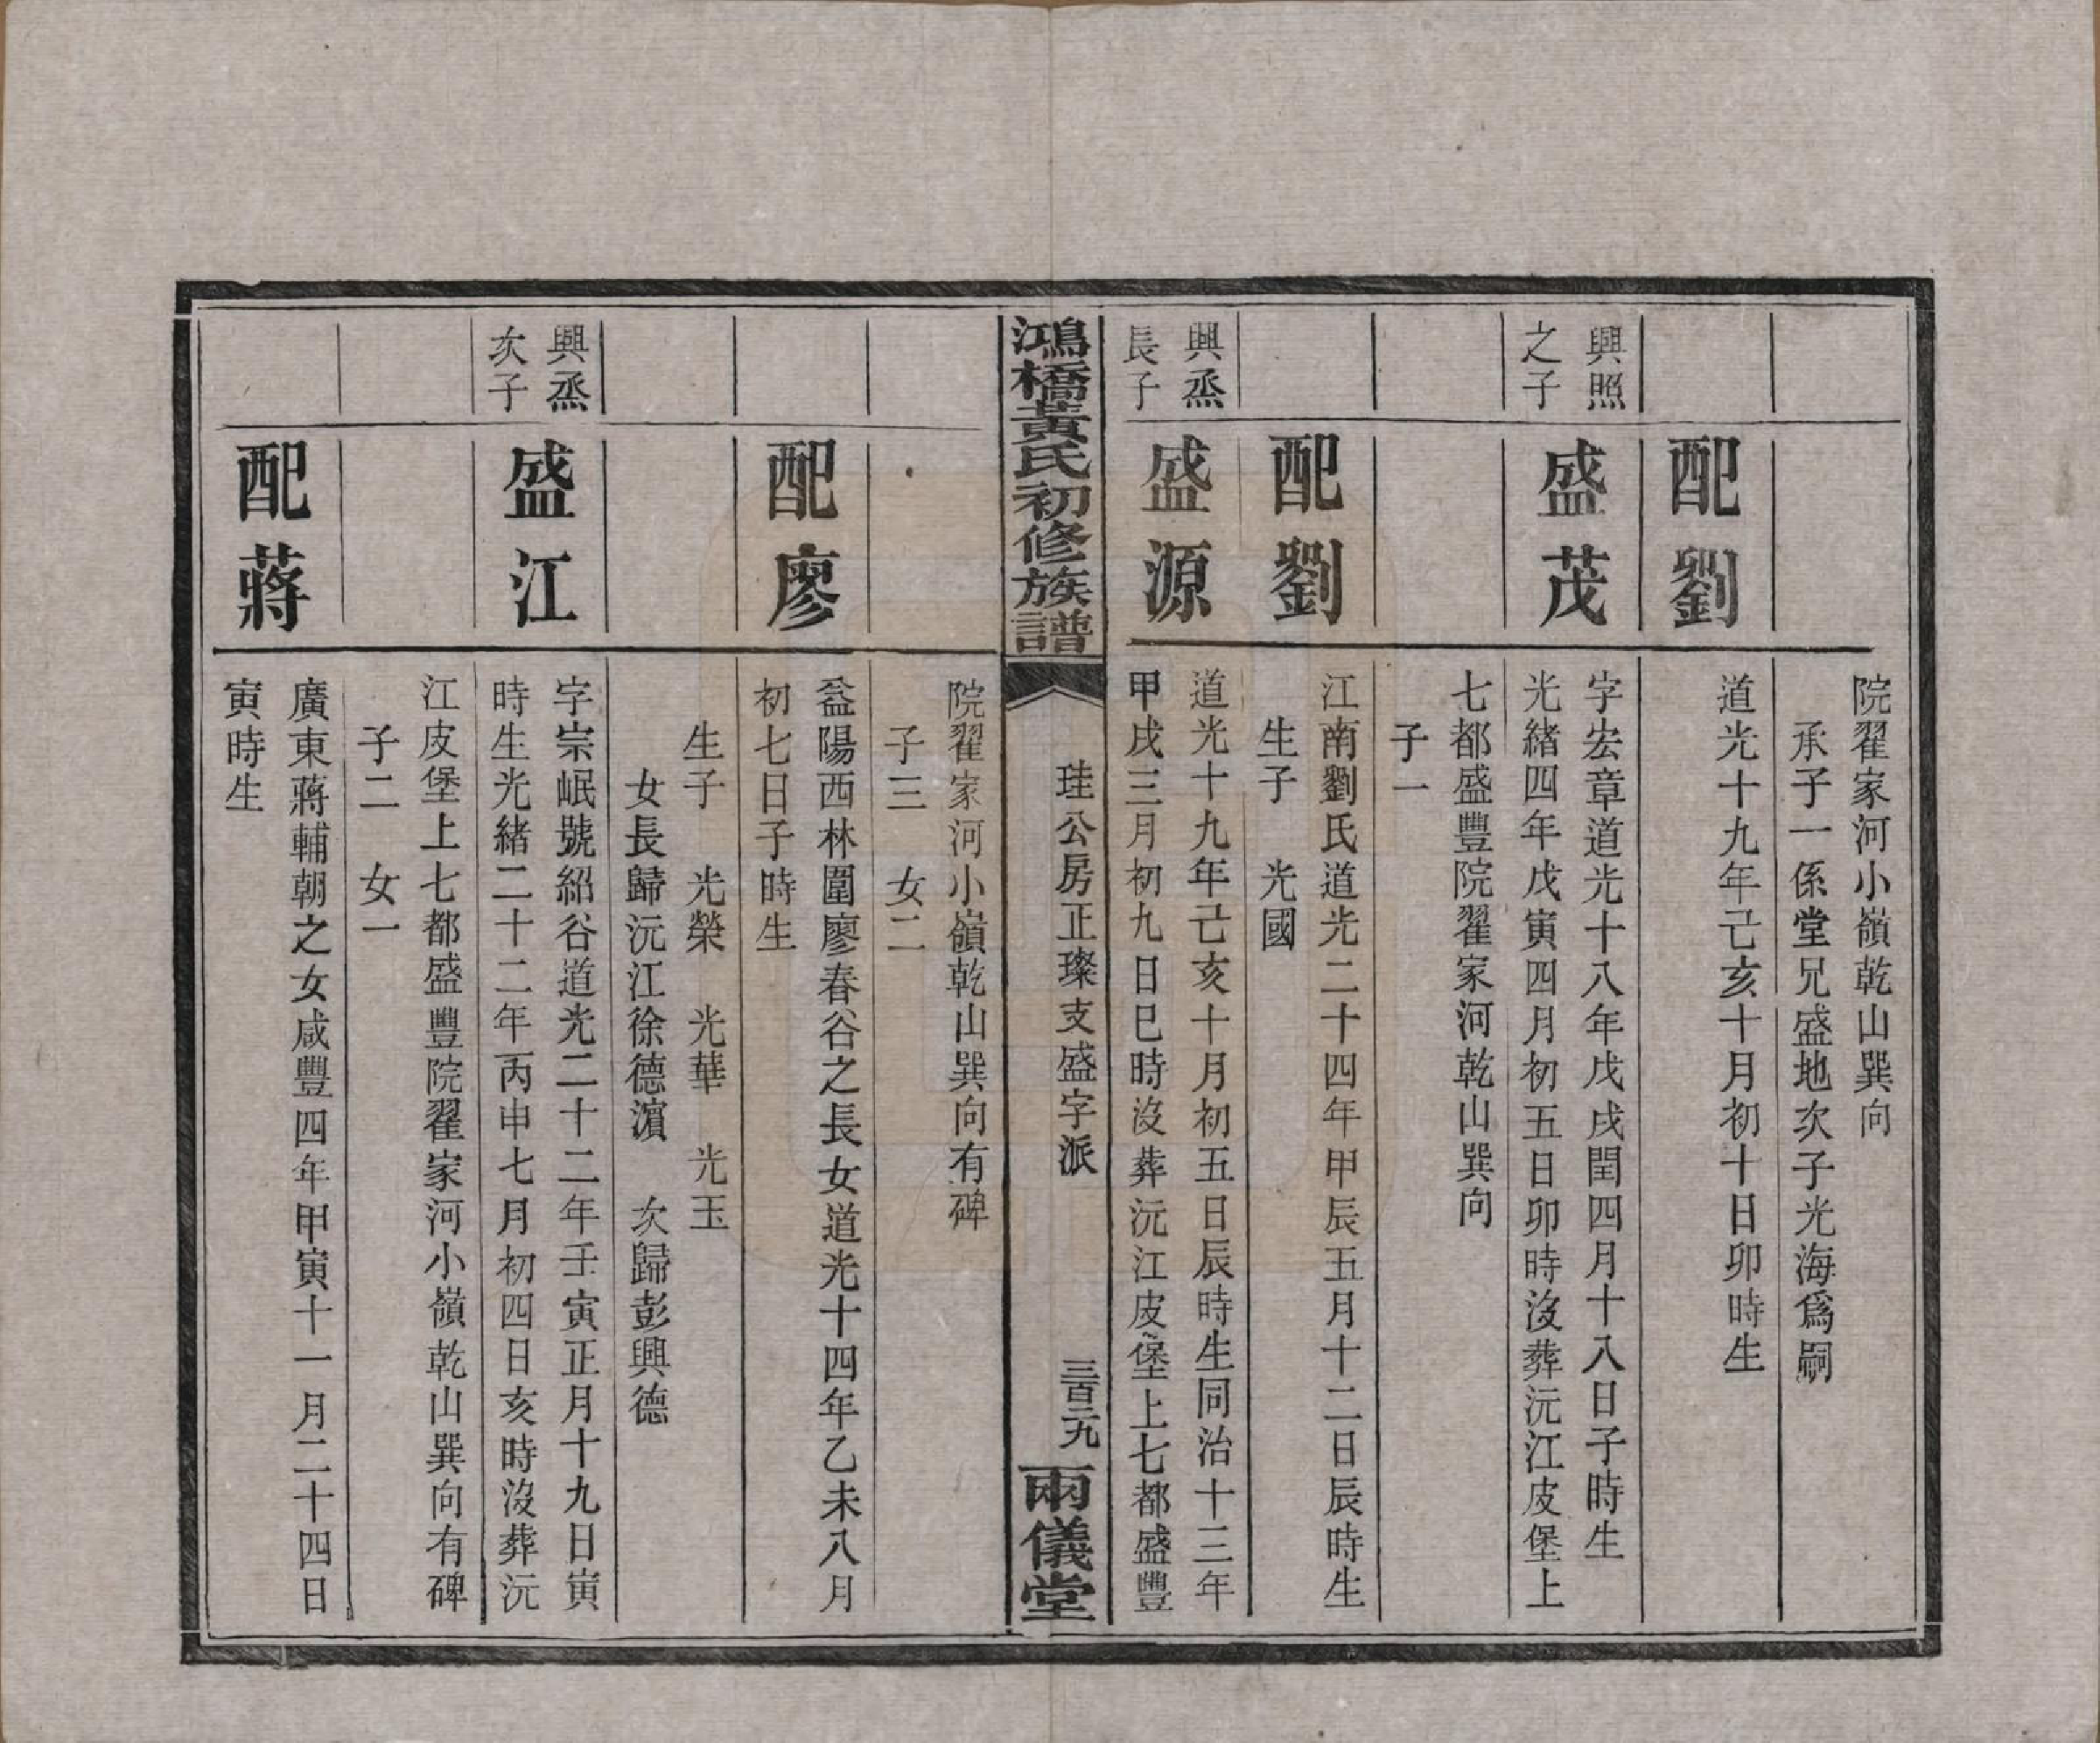 院翟家河小嶺乾山巽向
承子一係堂兄盛地次子光海爲嗣
配劉
道光十九年己亥十月初十日卯時生
興照
之子
盛茂
字宏章道光十八年戊戌閏四月十八日子時生
光緒四年戊寅四月初五日卯時沒葬沅江皮堡上
七都盛豐院翟家河乾山巽向
子一
配劉
江南劉氏道光二十四年甲辰五月十二日辰時生
生子 光國
興烝
長子
盛源
道光十九年己亥十月初五日辰時生同治十三年
甲戌三月初九日巳時沒葬沅江皮堡上七都盛豐
鴻橋黃氏初修族譜
珪公房正璨支盛字派
三百元九
兩儀堂
院翟家河小嶺乾山巽向有碑
子三 女二
配廖
益陽西林圍廖春谷之長女道光十四年乙未八月
初七日子時生
生子 光榮 光華 光玉
女長歸沅江徐德濵 次歸彭興德
興烝
次子
盛江
字宗岷號紹谷道光二十二年壬寅正月十九日寅
時生光緒二十二年丙申七月初四日亥時沒葬沅
江皮堡上七都盛豐院翟家河小嶺乾山巽向有碑
子二 女一
配蔣
廣東蔣輔朝之女咸豐四年甲寅十一月二十四日
寅時生